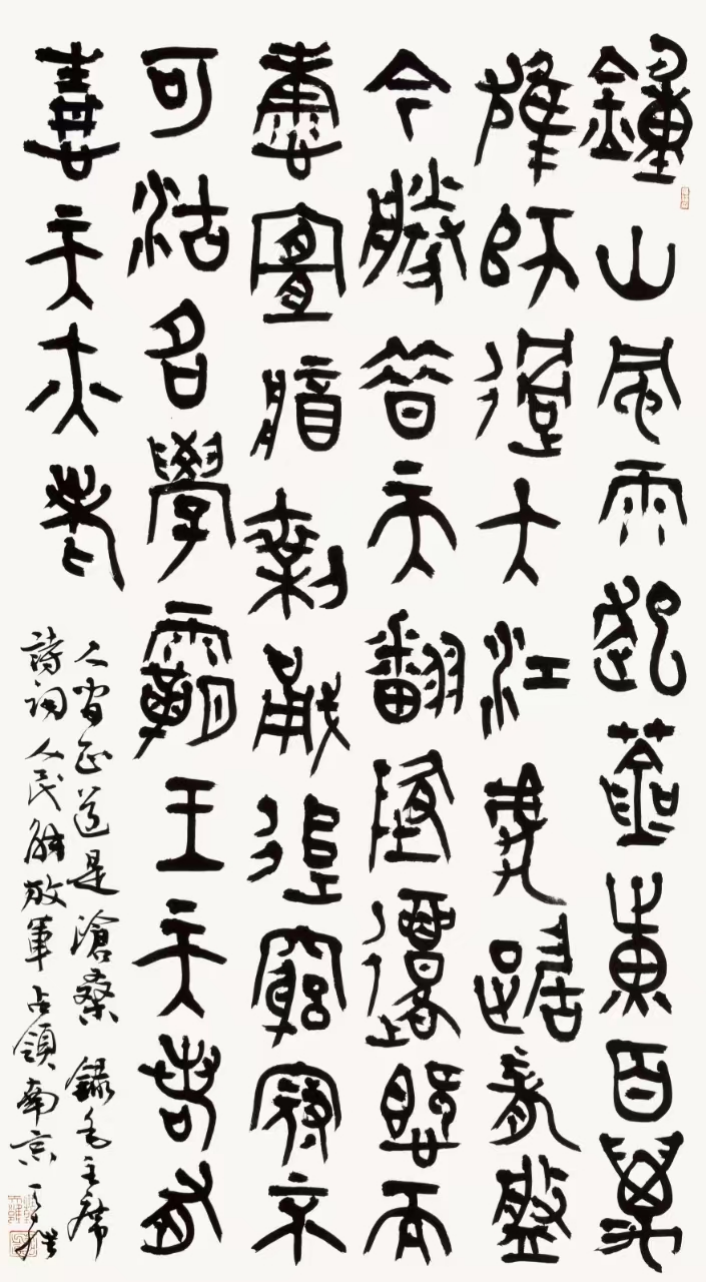 鐘山風雨起蒼黄百萬
雄師過大江虎踞龍盤
今勝昔天翻地覆慨而
慷宜將剩勇追窮寇不
可沽名學霸王天若有
情天亦老
人間正道是滄桑 錄毛主席
詩詞人民解放軍占領南京